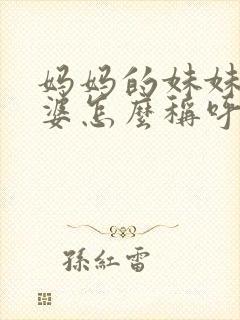 妈妈的妹妹
婆怎麼稱呼
孫紅雷